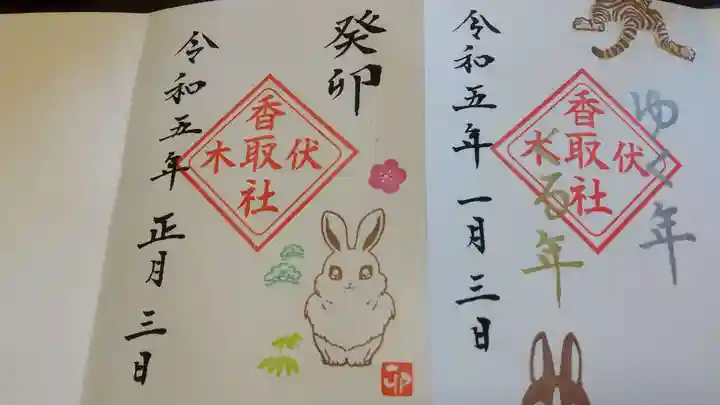 癸卯
伏木
香取社
令和五年 正月 三日
卯
ゆく年
くる年
伏木
香取社
令和五年 一月 三日